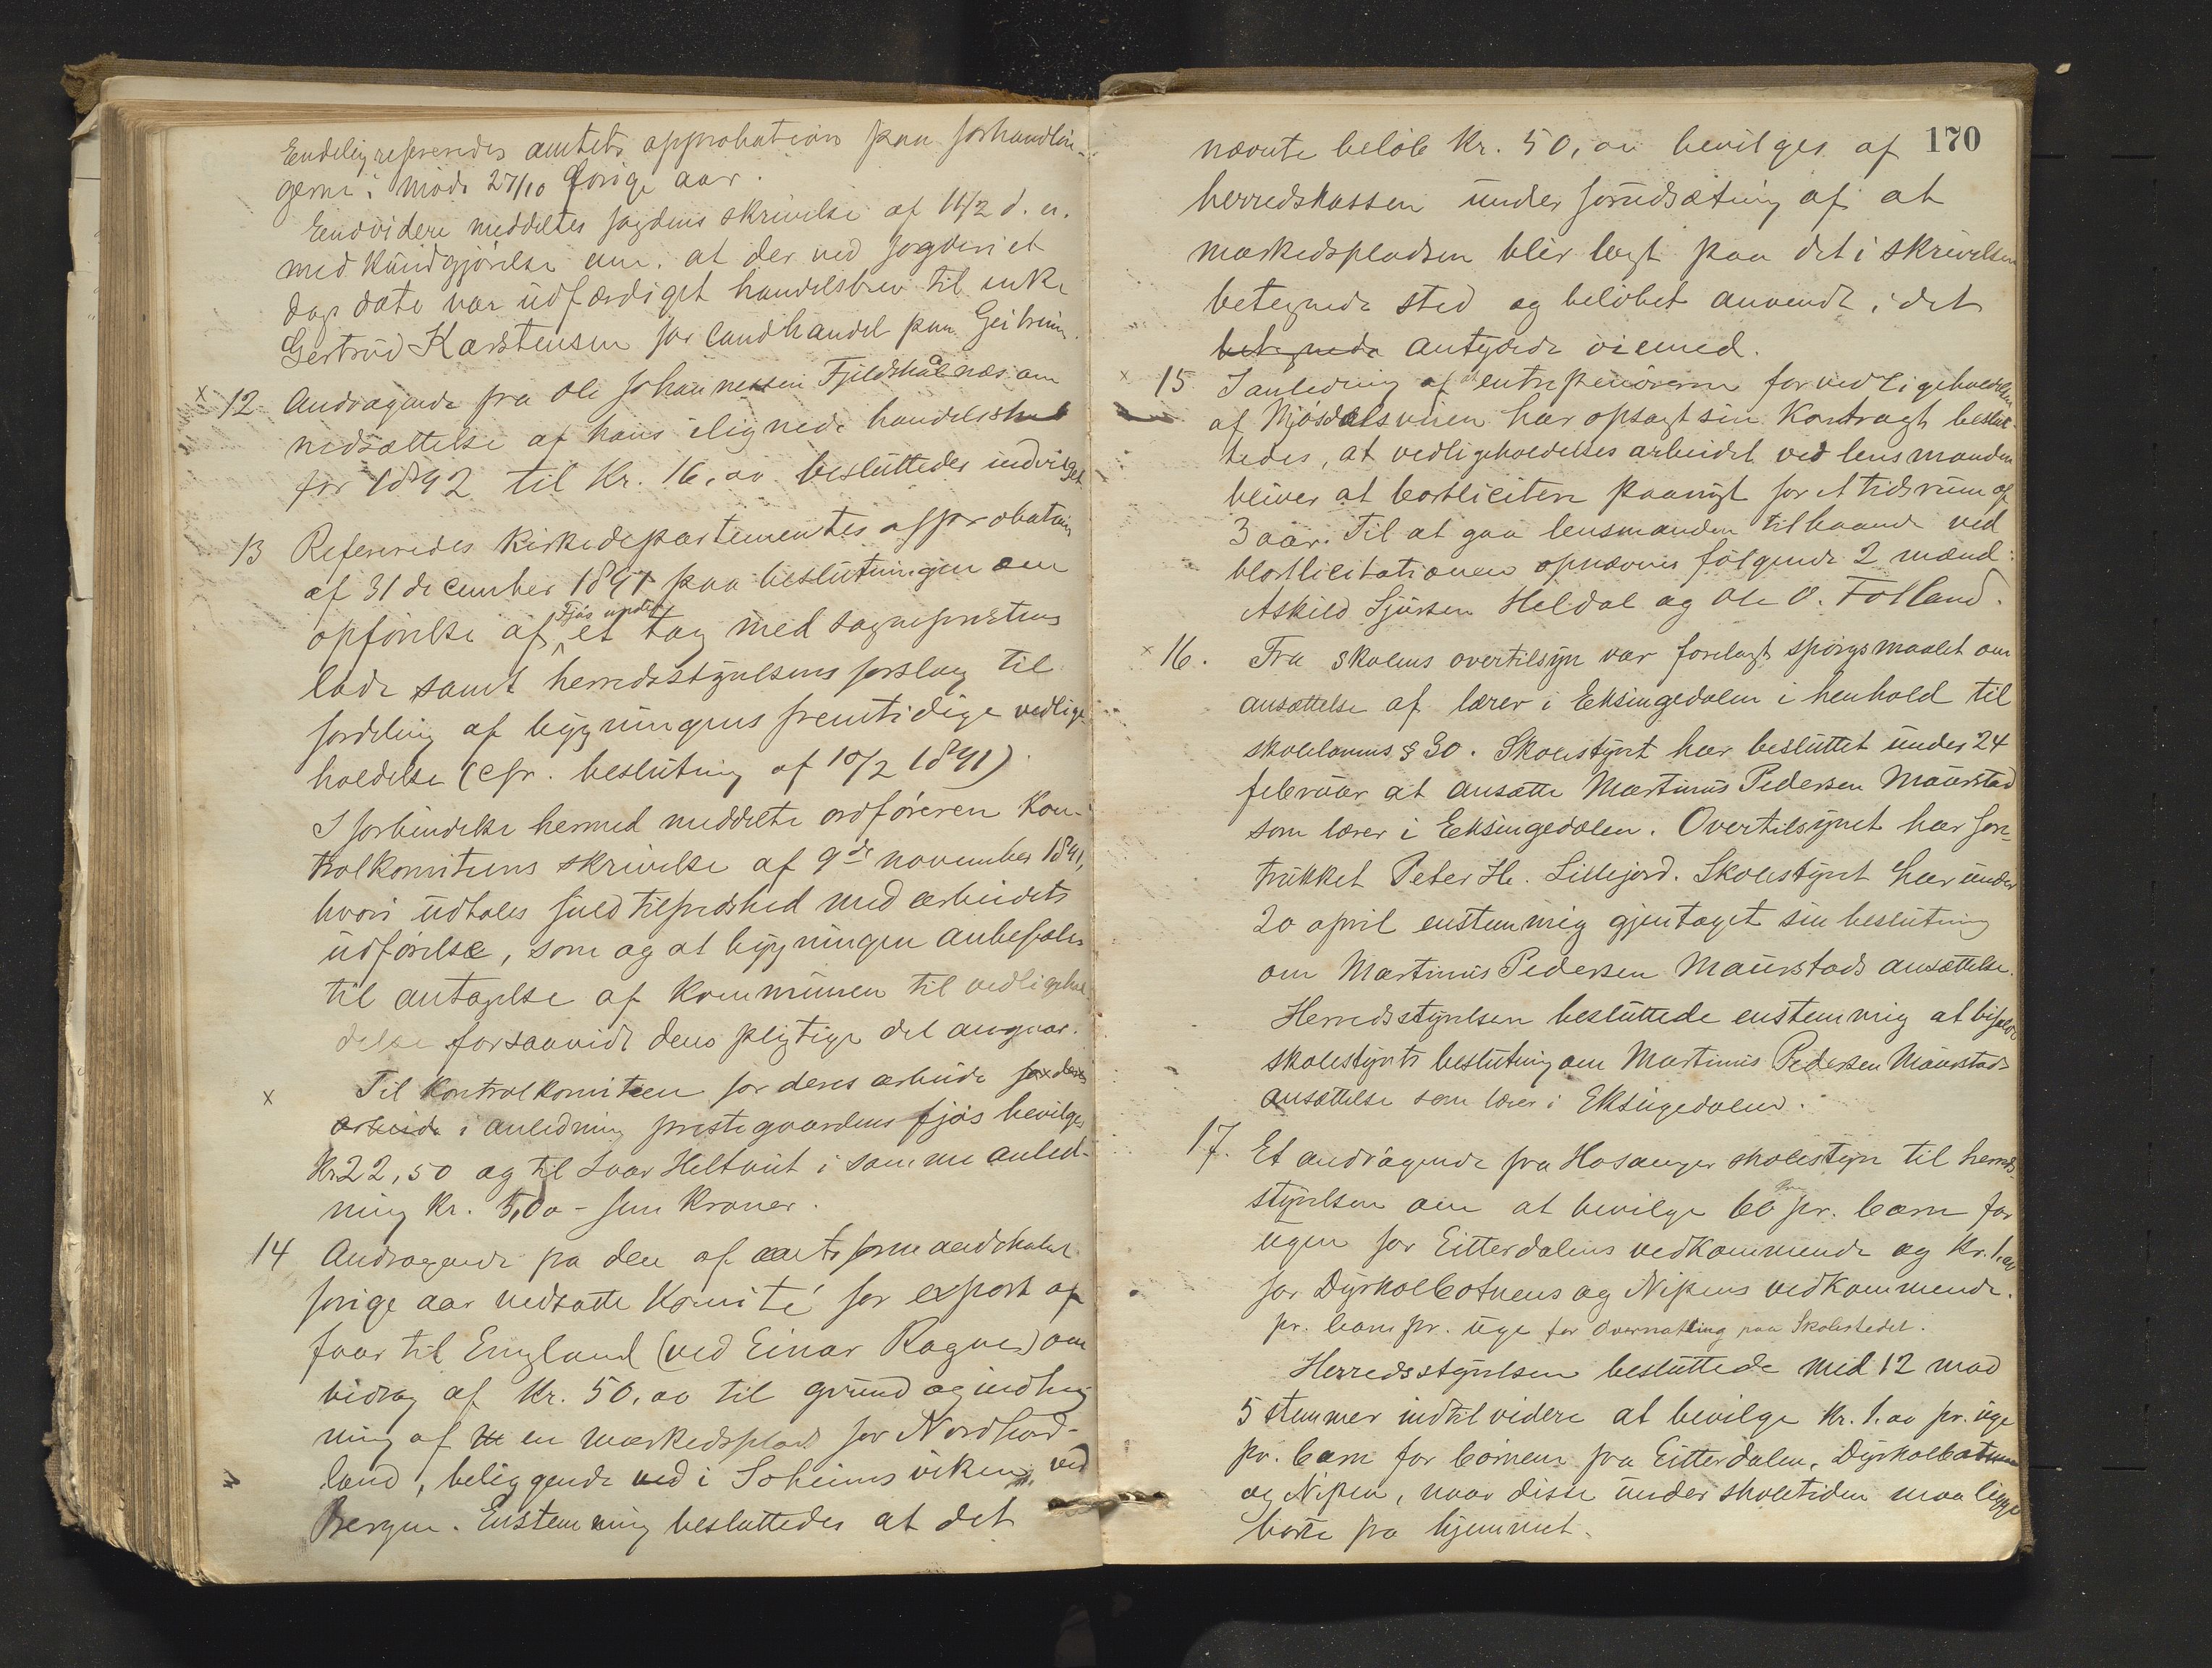 Endelig refereredes amtets approbation paa forhandlin-
gerne i möde 27/10 forige aar.
Endvidere meddeltes fogdens skrivelse af 11/2 d. a.
med kundgjörelse om, at der ved fogderiet
dags dato var udfærdiget handelsbrev til enke
Gertrud Karstensen for landhandel paa Geitreim.
x 12 Andragende fra Ole Johannessen Fjeldskaalnæs om
nedsættelse af hans ilignede handelsskat
for 1892 til Kr. 16,00 besluttedes indvilget
13 Refereredes kirkedepartementes approbation
af 31 december 1891 paa beslutningen om
opförelse af fjös under et tag med sogneprestens
lade samt herredsstyrelsens forslag til
fordeling af bygningens fremtidige vedlige-
holdelse (cfr. beslutning af 10/2 1891).
I forbindelse hermed meddelte ordföreren Kon-
trolkomiteens skrivelse af 9de november 1891,
hvori udtales fuld tilfredshed med arbeidets
udförelse, som og at bygningen anbefales
til antagelse af kommunen til vedligehol-
delse forsaavidt dens pligtige del angaar.
x Til kontrolkomiteen for deres arbeide for deres
arbeide i anledning prestegaardens fjös bevilges
Kr. 22,50 og til Ivar Heltveit i samme anled-
ning Kr. 5,00 - fem kroner.
14 Andragende fra den af amtsformandskabet
forige aar nedsatte Komité for export af
faar til England (ved Einar Ragne) om
bidrag af Kr. 50,00 til grund og indheg
ning af en markedsplads for Nordhord-
land, beliggende ved i Solheimsviken ved
Bergen. Enstemmig besluttedes at det
170
nævnte belöb Kr. 50,00 bevilges af
herredskassen under forudsætning af at
markedspladsen blir lagt paa det i skrivelsen
betegnede sted og belöbet anvendt i det
betegnede antydede öiemed.
x 15 I anledning af at entreprenörerne for vedligeholdelsen
af Mjösdalsveien har opsagt sin Kontragt beslut-
tedes, at vedligeholdelses arbeidet ved lensmanden
bliver at bortlicitere paanyt for et tidsrum af
3 aar. Til at gaa lensmanden tilhaande ved
bortlicitationen opnævnes fölgende 2 mænd:
Askild Sjursen Heldal og Ole O. Folland.
x 16. Fra skolens overtilsyn var forelagt spörgsmaalet om
ansættelse af lærer i Eksingedalen i henhold til
skolelovens § 30. Skolestyret har besluttet under 24
februar at ansætte Martinus Pedersen Maurstad
som lærer i Eksingedalen. Overtilsynet har fore-
trukket Peter H. Lillejord. Skolestyret har under
20 april enstemmig gjentaget sin beslutning
om Martinus Pedersen Maurstads ansættelse.
Herredsstyrelsen besluttede enstemmig at bifalde
skolestyrets beslutning om Martinus Pedersen Maurstads
ansættelse som lærer i Eksingedalen.
17. Et andragende fra Hosanger skolestyre til herreds-
styrelsen om at bevilge 60 pr. barn for
ugen for Eitterdalens vedkommende og Kr. 1,00
for Dyrkolbotnens og Nipens vedkommende.
pr. barn pr. uge for overnatting paa Skolestedet.
Herredsstyrelsen besluttede med 12 mod
5 stemmer indtil videre at bevilge Kr. 1.00 pr. uge
pr. barn for börnene fra Eitterdalen, Dyrkolbotnen
og Nipen, naar disse under skoletiden maa ligge
borte fra hjemmet.